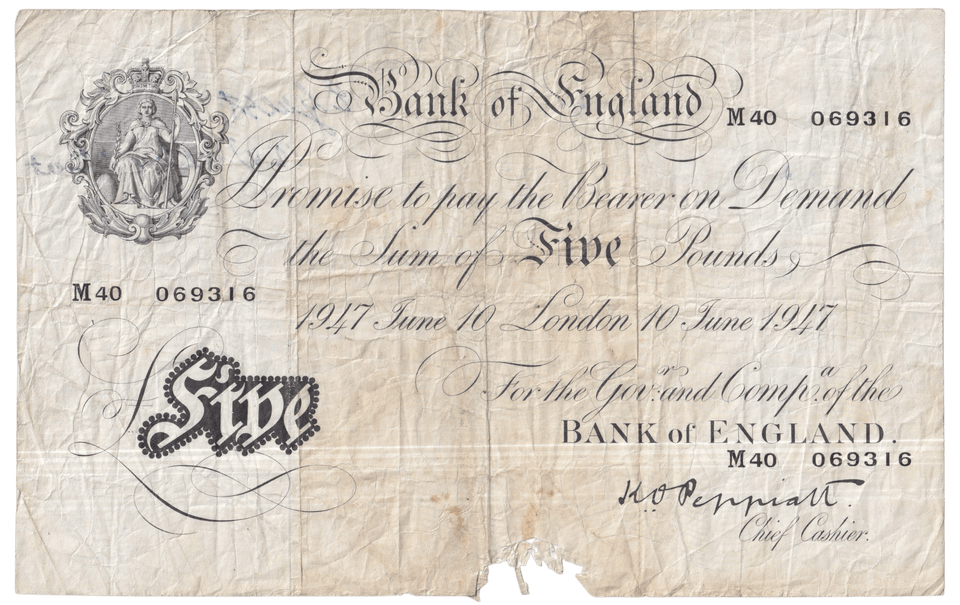 Bank of England M40 069316
Promise to pay the Bearer on Demand
the Sum of Five Pounds
M40 069316
1947 June 10 London 10 June 1947
£Five
For the Gov.r and Comp.a of the
BANK of ENGLAND.
M40 069316
K.O Peppiatt.
Chief Cashier.